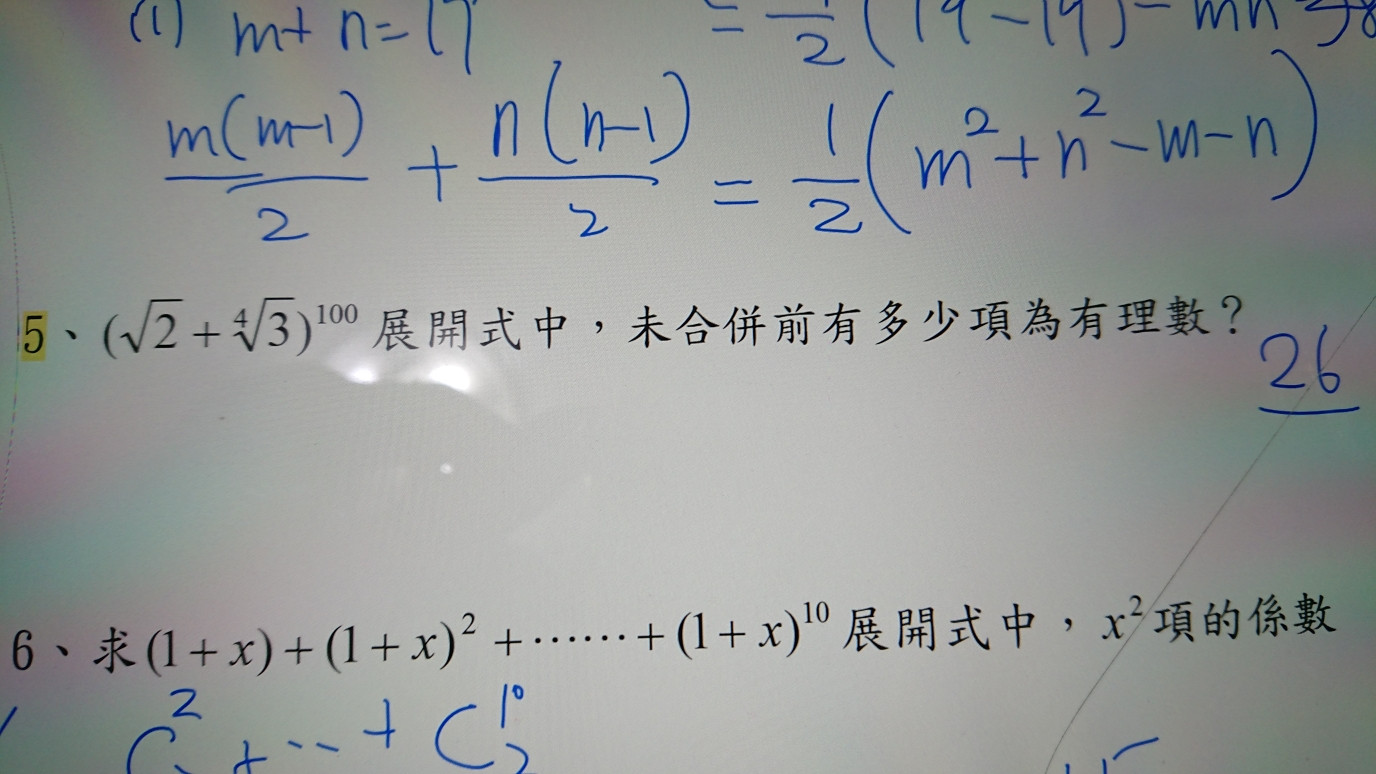 (1) m+n=17 = 1/2(19-19)-mn
m(m-1)/2 + n(n-1)/2 = 1/2(m²+n²-m-n)
5、(√2+∜3)¹⁰⁰ 展開式中，未合併前有多少項為有理數？ 26
6、求(1+x)+(1+x)²+⋯⋯+(1+x)¹⁰ 展開式中，x²項的係數
C²+⋯+C¹⁰₂